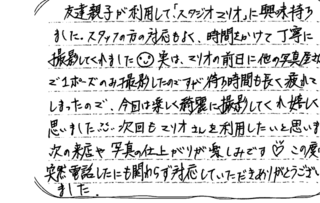 友達親子が利用して「スタジオマリオ」に興味持ち
ました。スタッフの方の対応もよく、時間をかけて丁寧に
撮影してくれました😊実は、マリオの前日に他の写真屋さ
で1ポーズのみ撮影したのですが待ち時間も長く疲れて
しまったので、今回は楽しく綺麗に撮影してくれ嬉しく
思いました。次回もマリオさんを利用したいと思いま
次の来店や写真の仕上がりが楽しみです♡この度は
突然電話したにも関わらず対応していただきありがとうござい
ました。